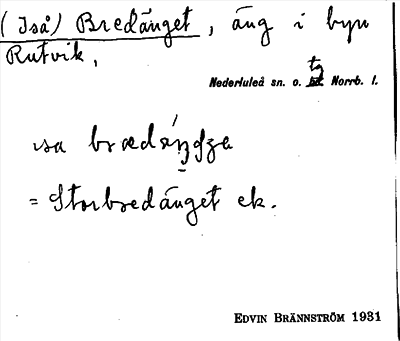 (Iså) Bredänget, äng i byn
Rutvik,
Nederluleå sn. o. tg Norrb. l.
ısa brædæŋʤɛ
= Storbredänget ek.
EDVIN BRÄNNSTRÖM 1931